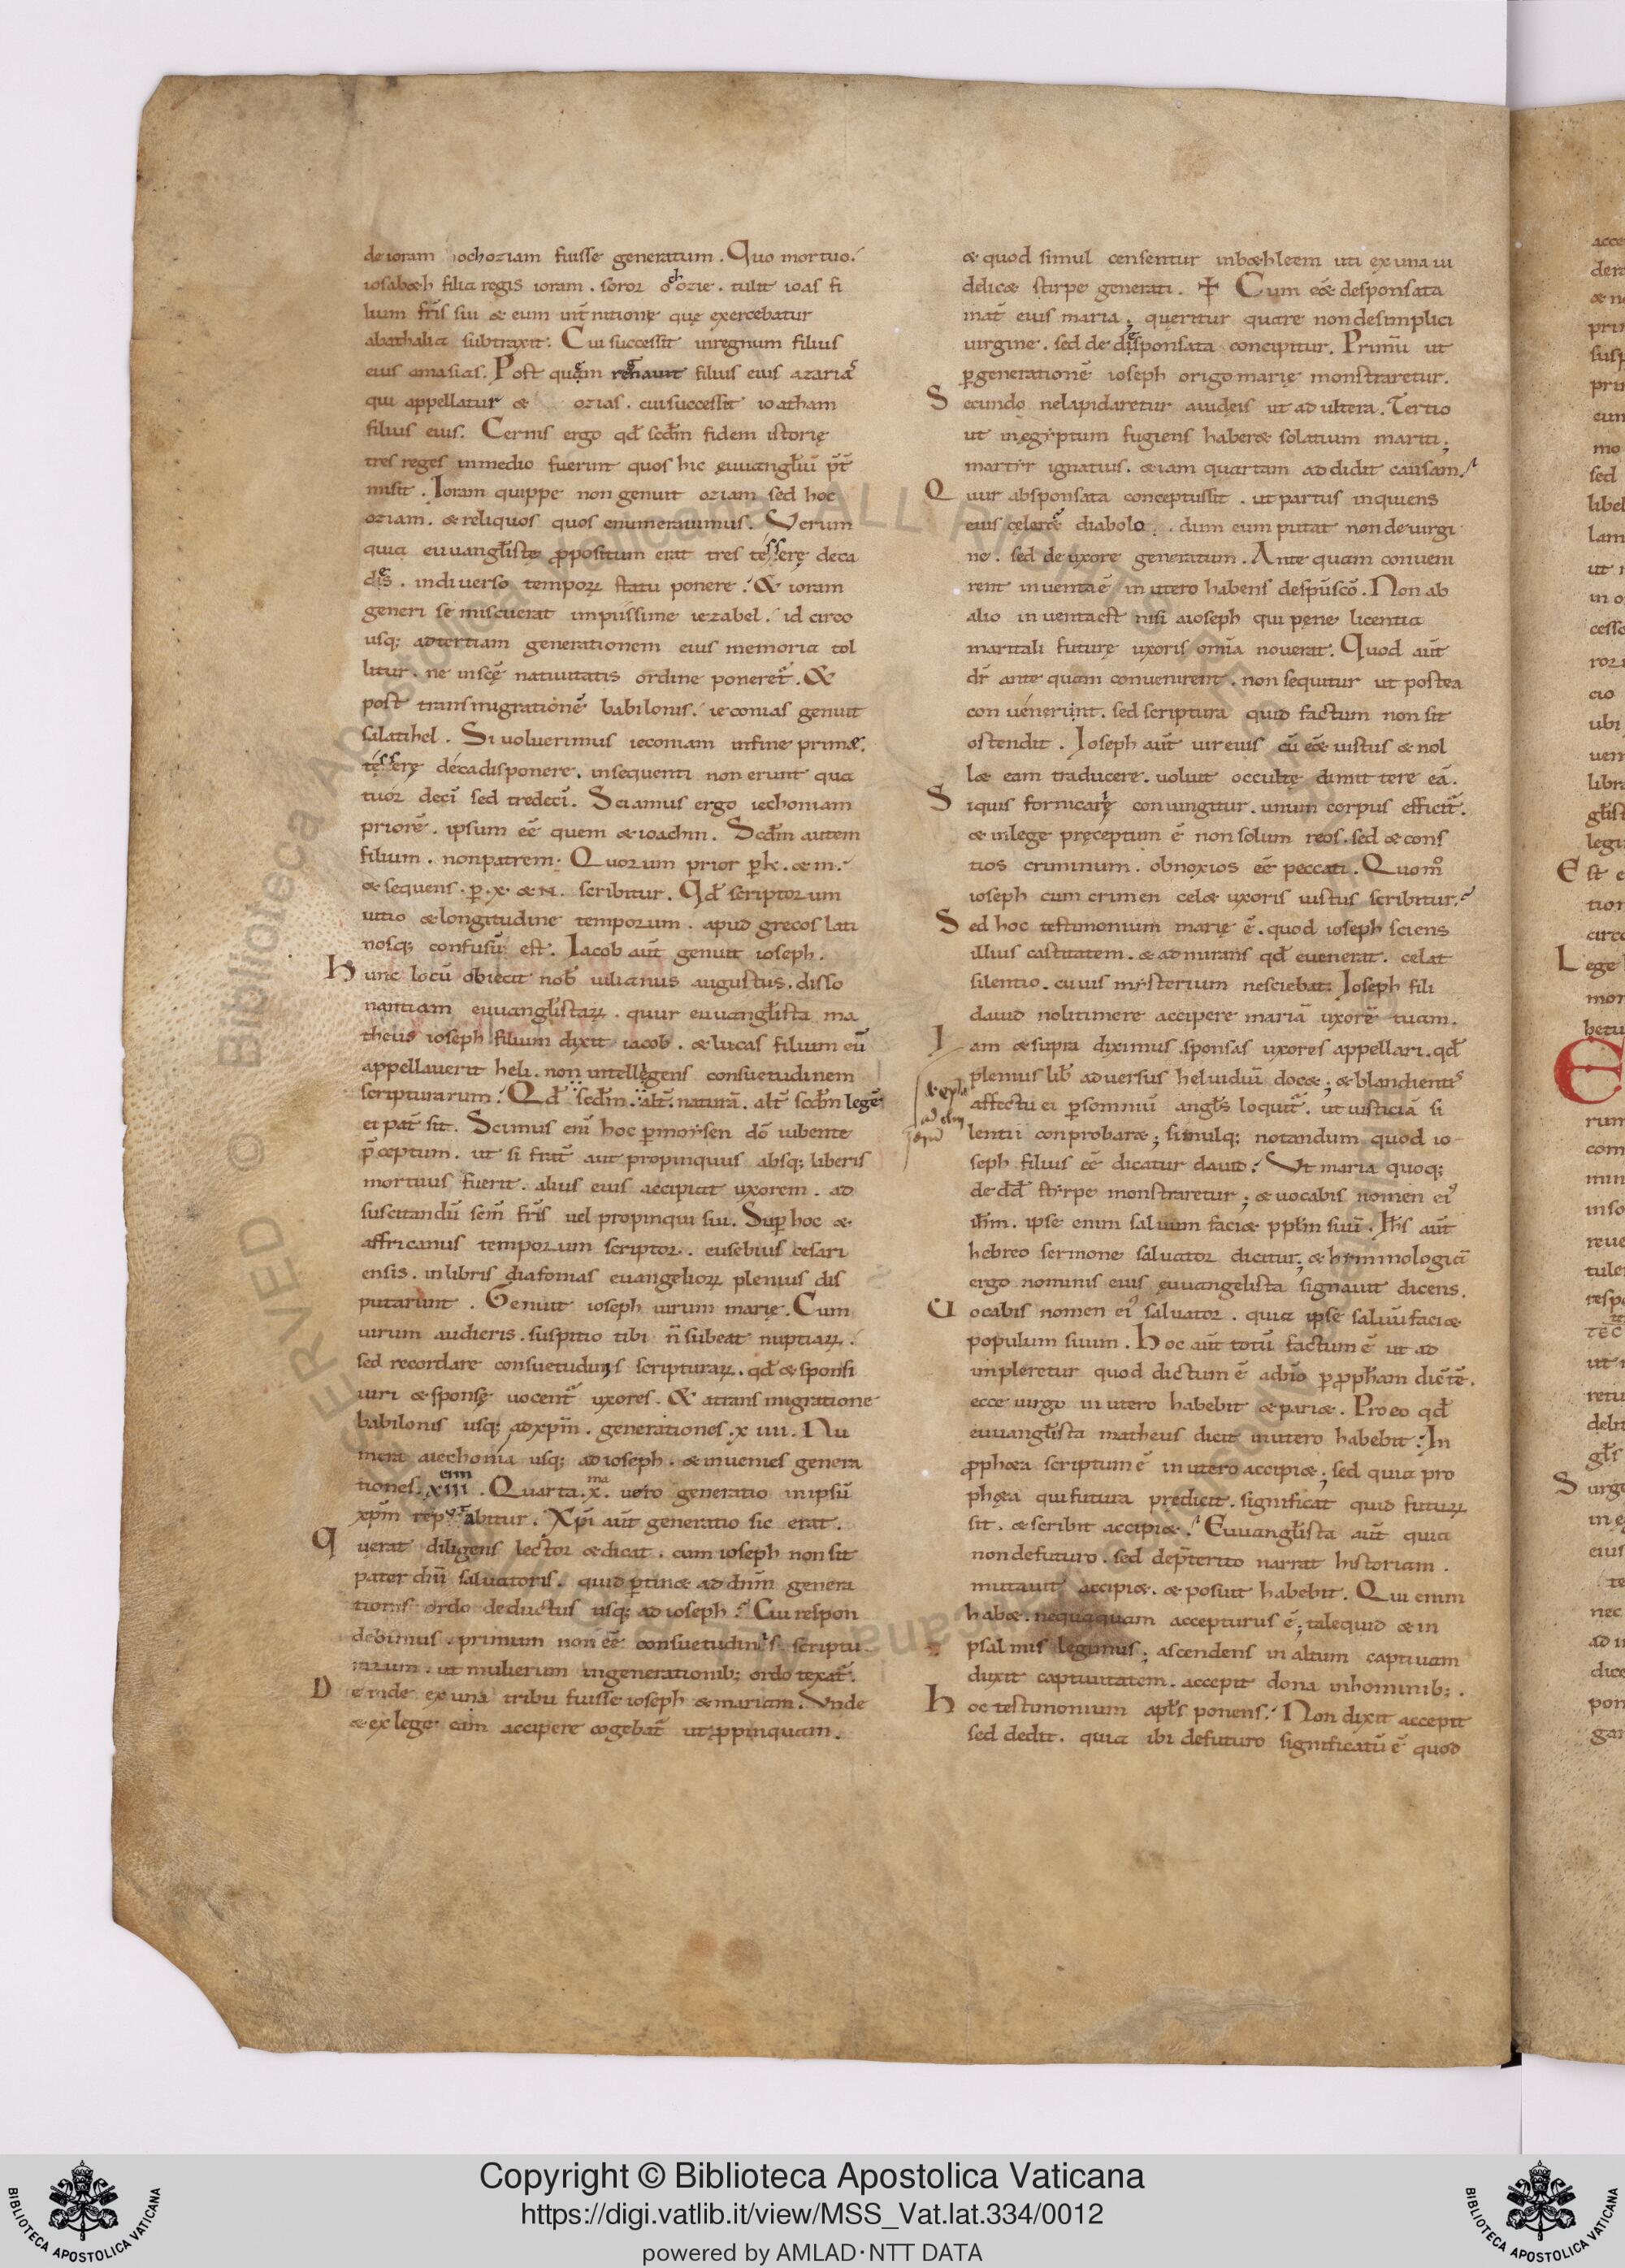 de ioram iochoziam fuisse generatum. Quo mortuo.
iosabeth filia regis ioram. soror ochozie. tulit ioas fi
lium fr̄is sui & eum int̄nitione quę exercebatur
abathalia subtraxit. Cui successit inregnum filius
eius amasias. Post quem regnauit filius eius azarias
qui appellatur & ozias. cuisuccessit ioatham
filius eius. Cernis ergo qđ scđm fidem istorię
tres reges inmedio fuerint quos hic euuangłiū p̄t̄
misit. Ioram quippe non genuit oziam sed hoc
oziam. & reliquos quos enumerauimus. Verum
quia euuangłistę ꝓpositum erat tres tesserę deca
des. indiuerso temporꝝ statu ponere. & ioram
generi se miscuerat impiissime iezabel. id circo
usq; adtertiam generationem eius memoria tol
litur. ne inscę̄ natiuitatis ordine poneret̄. &
post transmigrationē babilonis. ieconias genuit
salatihel. Si uoluerimus ieconiam infine primæ.
tesserę decadisponere. insequenti non erunt qua
tuor decī sed tredecī. Sciamus ergo iechoniam
priorē. ipsum eē quem & ioachin. Scđm autem
filium. nonpatrem. Quorum prior ꝑ k. & m.
& sequens. ꝑ. x. & n. scribitur. Qđ scriptorum
uitio & longitudine temporum. apud grecos lati
nosq; confusū est. Iacob aūt genuit ioseph.
Hunc locū obiecit nob̄ iulianus augustus. disso
nantiam euuangłistarꝝ. quur euuangłista ma
theus ioseph filium dixit iacob. & lucas filium eū
appellauerit heli. non intellegens consuetudinem
scripturarum. Qđ scđm alt̄. naturā. alt̄ scđm legē
ei pat̄ sit. Scimus enī hoc ꝑmoysen dō iubente
p̄ceptum. ut si frat̄ aut propinquus absq; liberis
mortuus fuerit. alius eius accipiat uxorem. ad
suscitandū sem̄ fr̄is uel propinqui sui. Suꝑ hoc &
affricanus temporum scriptor. eusebius cesari
ensis. inlibris diafonias euangeliorꝝ plenius dis
putarunt. Genuit ioseph uirum marię. Cum
uirum audieris. suspitio tibi n̄ subeat nuptiarꝝ.
sed recordare consuetudinis scripturarꝝ. qđ & sponsi
uiri & sponsę uocent̄ uxores. & atransmigratione
babilonis usq; adxp̄m. generationes. xiiii. Nu
mera aiechonia usq; ad ioseph. & inuenies genera
tiones. xiii. Quarta. x. uero generatio inipsū
xp̄m reputabitur. Xp̄i aūt generatio sic erat.
Querat diligens lector & dicat. cum ioseph non sit
pater dn̄i saluatoris. quid ꝑtin& ad dn̄m genera
tionis ordo deductus usq; ad ioseph? Cui respon
debimus. primum non eē consuetudinis scriptu
rarum. ut mulierum ingenerationib; ordo texat̄.
Deinde ex una tribu fuisse ioseph & mariam. Unde
& exlege eam accipere cogebat̄ ut ꝓpinquam.
& quod simul censentur inb&hleem uti ex una iu
delic& stirpe generati. ✝ Cum eēt desponsata
mat̄ eius maria; queritur quare nondesimplici
uirgine. sed de desponsata concipitur. Primū ut
ꝑgenerationē ioseph origo marię monstraretur.
Secundo nelapidaretur aiudeis ut adultera. Tertio
ut inęgyptum fugiens haber& solatium mariti;
martyr ignatius. &iam quartam addidit causam.
Quur absponsata conceptussit. ut partus inquiens
eius celar& diabolo. dum eum putat nondeuirgi
ne. sed de uxore generatum. Ante quam conueni
rent inuenta ē in utero habens desp̄u sc̄o. Non ab
alio inuentaest nisi aioseph qui pene licentia
maritali futurę uxoris om̄ia nouerat. Quod aūt
dr̄ ante quam conuenirent. non sequitur ut postea
conuenerint. sed scriptura quid factum non sit
ostendit. Ioseph aūt uir eius cū eēt iustus & nol
l& eam traducere. uoluit occultę dimittere eā.
Siquis fornicarię coniungitur. unum corpus efficit̄.
& inlege pręceptum ē non solum reos. sed & cons
tios criminum. obnoxios eē peccati. Quom̊
ioseph cum crimen cel& uxoris iustus scribitur?
Sed hoc testimonium marię ē. quod ioseph sciens
illius castitatem. & admirans qđ euenerat. celat
silentio. cuius mysterium nesciebat. Ioseph fili
dauid nolitimere accipere mariā uxorē tuam.
Iam & supra diximus sponsas uxores appellari. qđ
plenius lib̄ aduersus heluidiū doc&; & blandientis
affectu ei ꝑsomniū angłs loquit̄. ut iusticiā si
lentii conprobar&; simulq; notandum quod io-
seph filius eē dicatur dauid. Ut maria quoq;
de dđ styrpe monstraretur; & uocabis nomen eiꝰ
ih̄m. ipse enim saluum faci& ppłm suū. Ih̄s aūt
hebreo sermone saluator dicitur; & hyminologiā
ergo nominis eius euuangelista signauit dicens.
Uocabis nomen eiꝰ saluator. quia ipse saluū faci&
populum suum. Hoc aūt totū factum ē ut ad
impleretur quod dictum ē adn̄o ꝑ ꝓph̄am dic̄tē.
ecce uirgo in utero habebit & pari&. Pro eo qđ
euuangłista matheus dicit inutero habebit. In
ꝓph&a scriptum ē in utero accipi&; sed quia pro
ph&a quifutura predicit. significat quid futurꝝ
sit. & scribit accipi&. Euuangłista aūt quia
nondefuturo. sed dep̄terito narrat historiam.
mutauit accipi&. & posuit habebit. Qui enim
hab&. nequaquam accepturus ē; talequid & in
psalmis legimus; ascendens in altum captiuam
duxit captiuitatem. accepit dona inhominib;.
Hoc testimonium apłs ponens. Non dixit accepit
sed dedit. quia ibi defuturo significatū ē quod
Copyright © Biblioteca Apostolica Vaticana
https://digi.vatlib.it/view/MSS_Vat.lat.334/0012
powered by AMLAD·NTT DATA
BIBLIOTECA APOSTOLICA VATICANA
BIBLIOTECA APOSTOLICA VATICANA